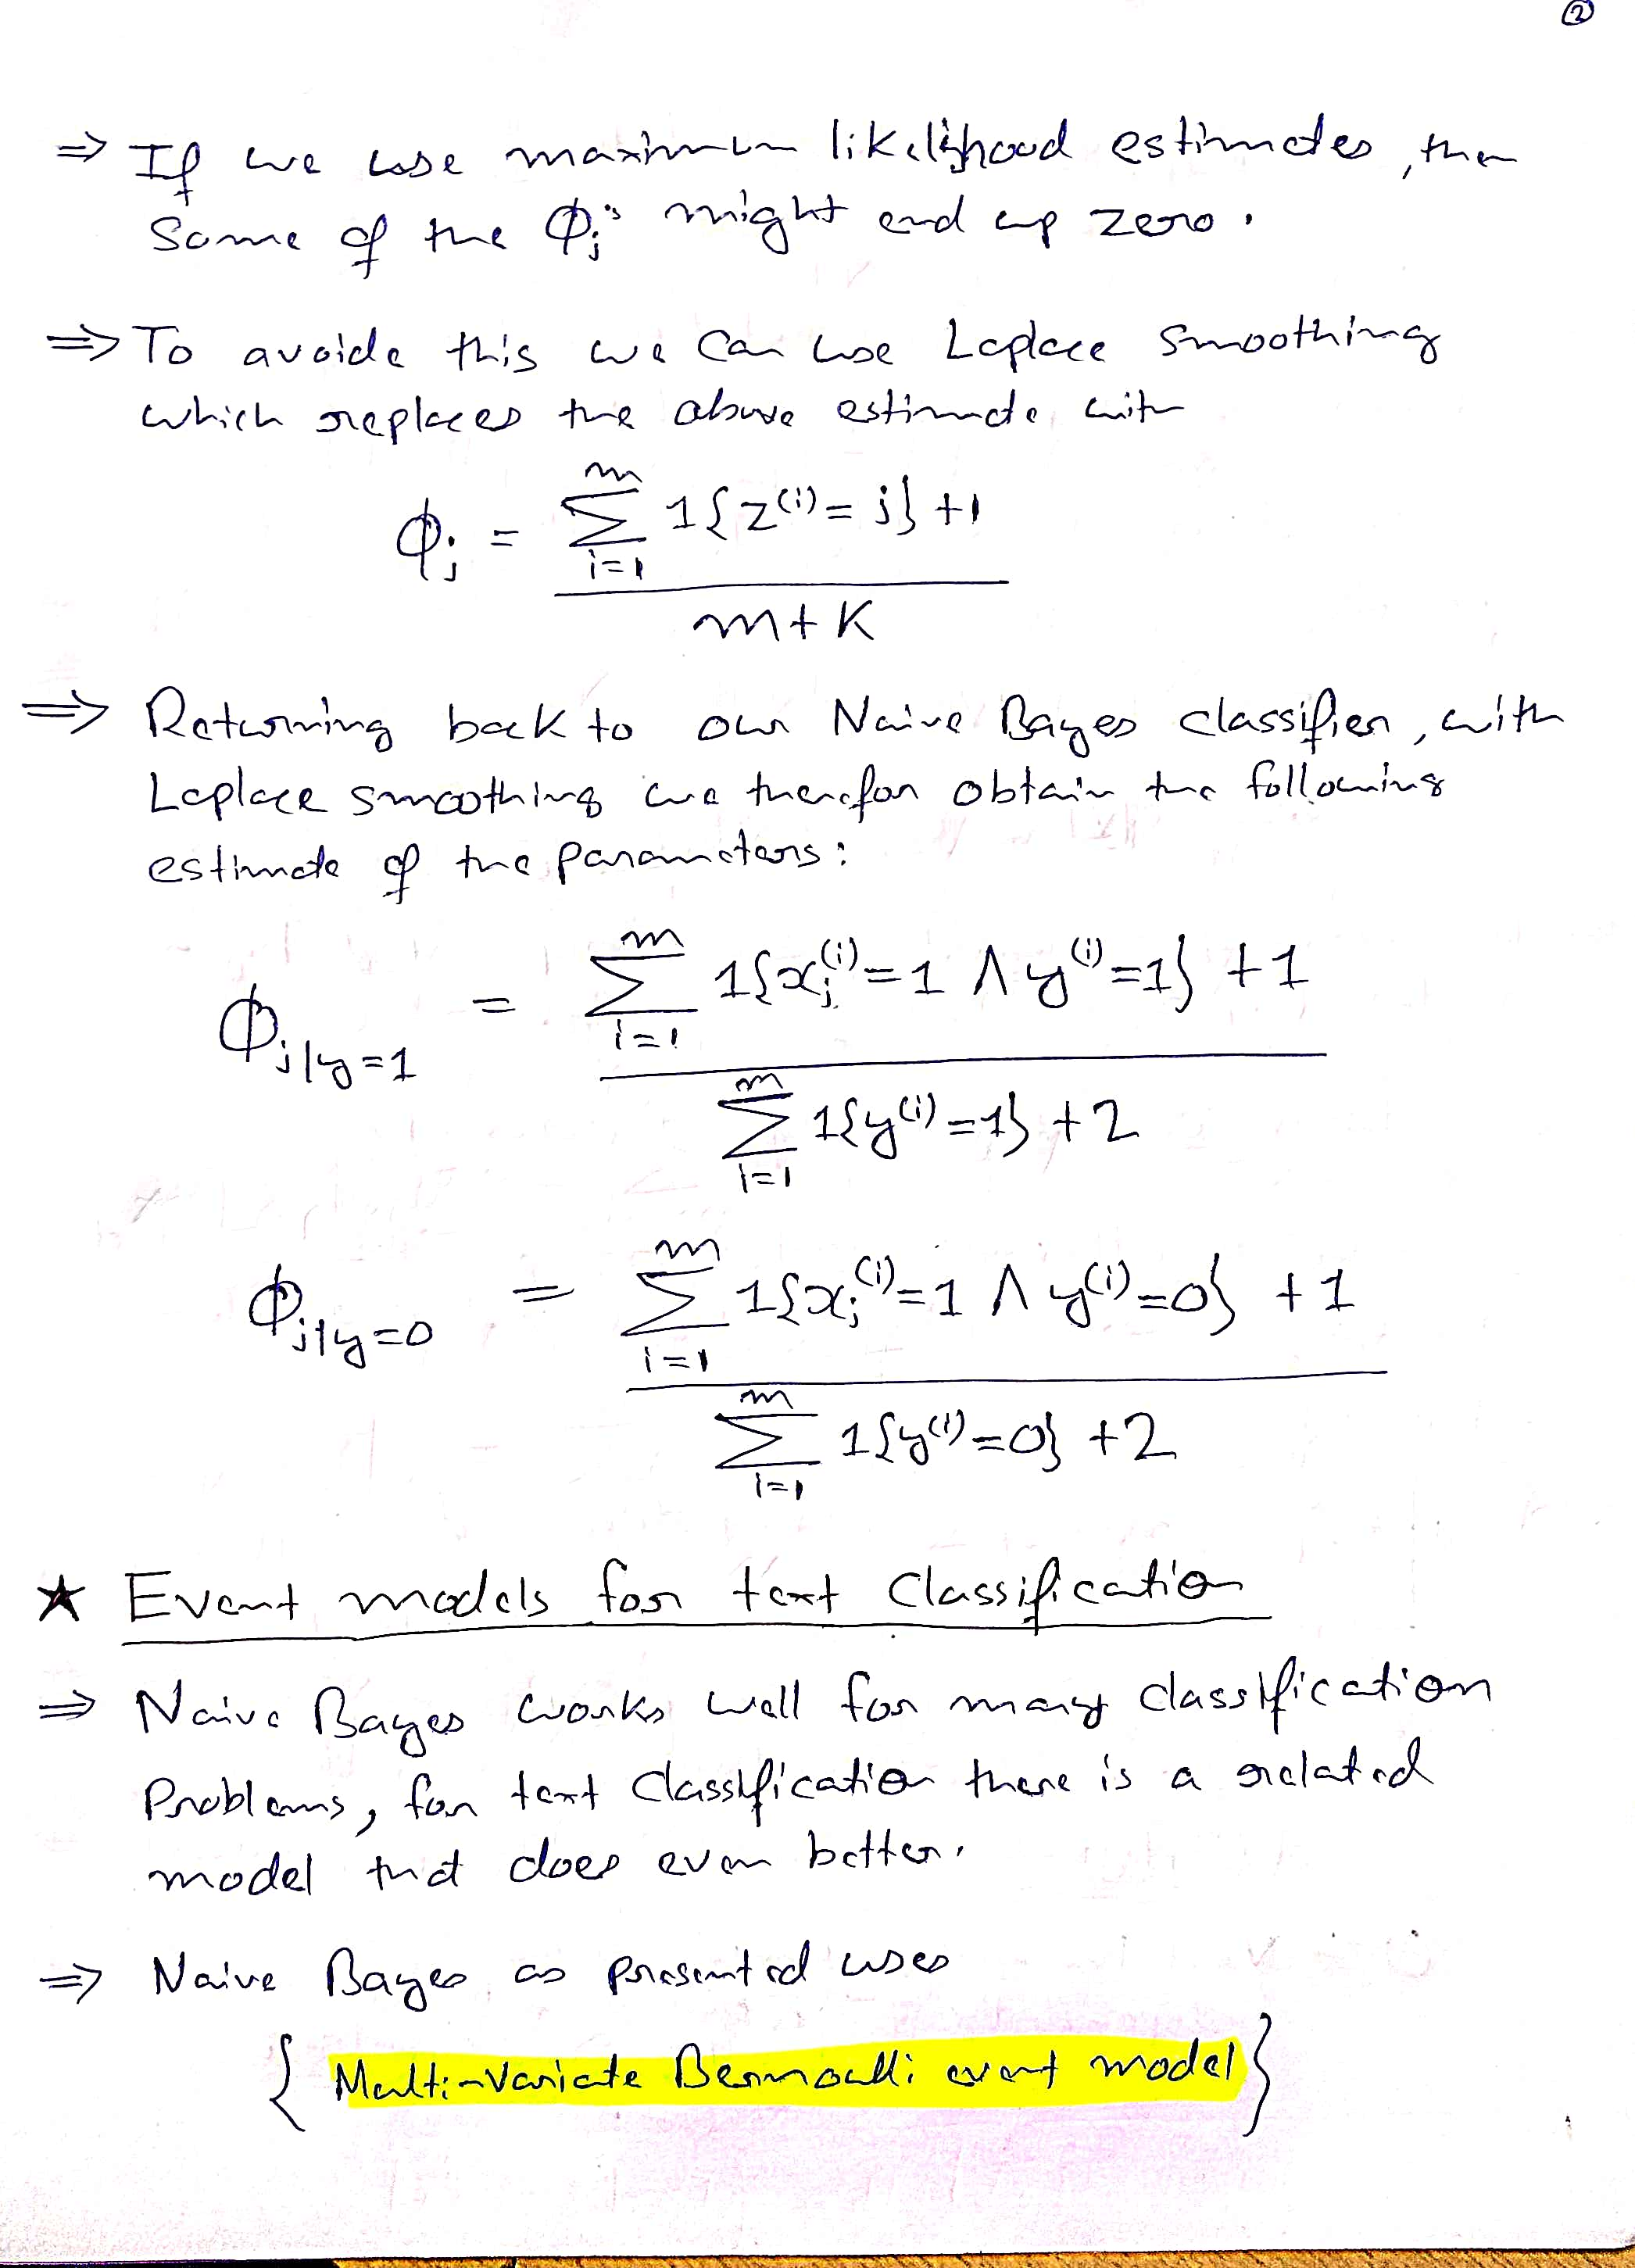 ②
⇒ If we use maximum likelihood estimates, then
Some of the Φj's might end up zero.
⇒ To avoide this we can use Laplace Smoothing
which replaces the above estimate with
Φj = m∑i=1 1{z(i) = j} +1
m+K
⇒ Returning back to our Naive Bayes classifier, with
Laplace smoothing we therefor obtain the following
estimate of the parameters:
Φj|y=1 = m∑i=1 1{xj(i)=1 ∧ y(i)=1} +1
m∑i=1 1{y(i)=1} +2
Φj|y=0 = m∑i=1 1{xj(i)=1 ∧ y(i)=0} +1
m∑i=1 1{y(i)=0} +2
★ Event models for text Classification
⇒ Naive Bayes works well for many classification
Problems, for text classification there is a related
model that does even better.
⇒ Naive Bayes as presented uses
{ Multi-Variate Bernoulli event model }